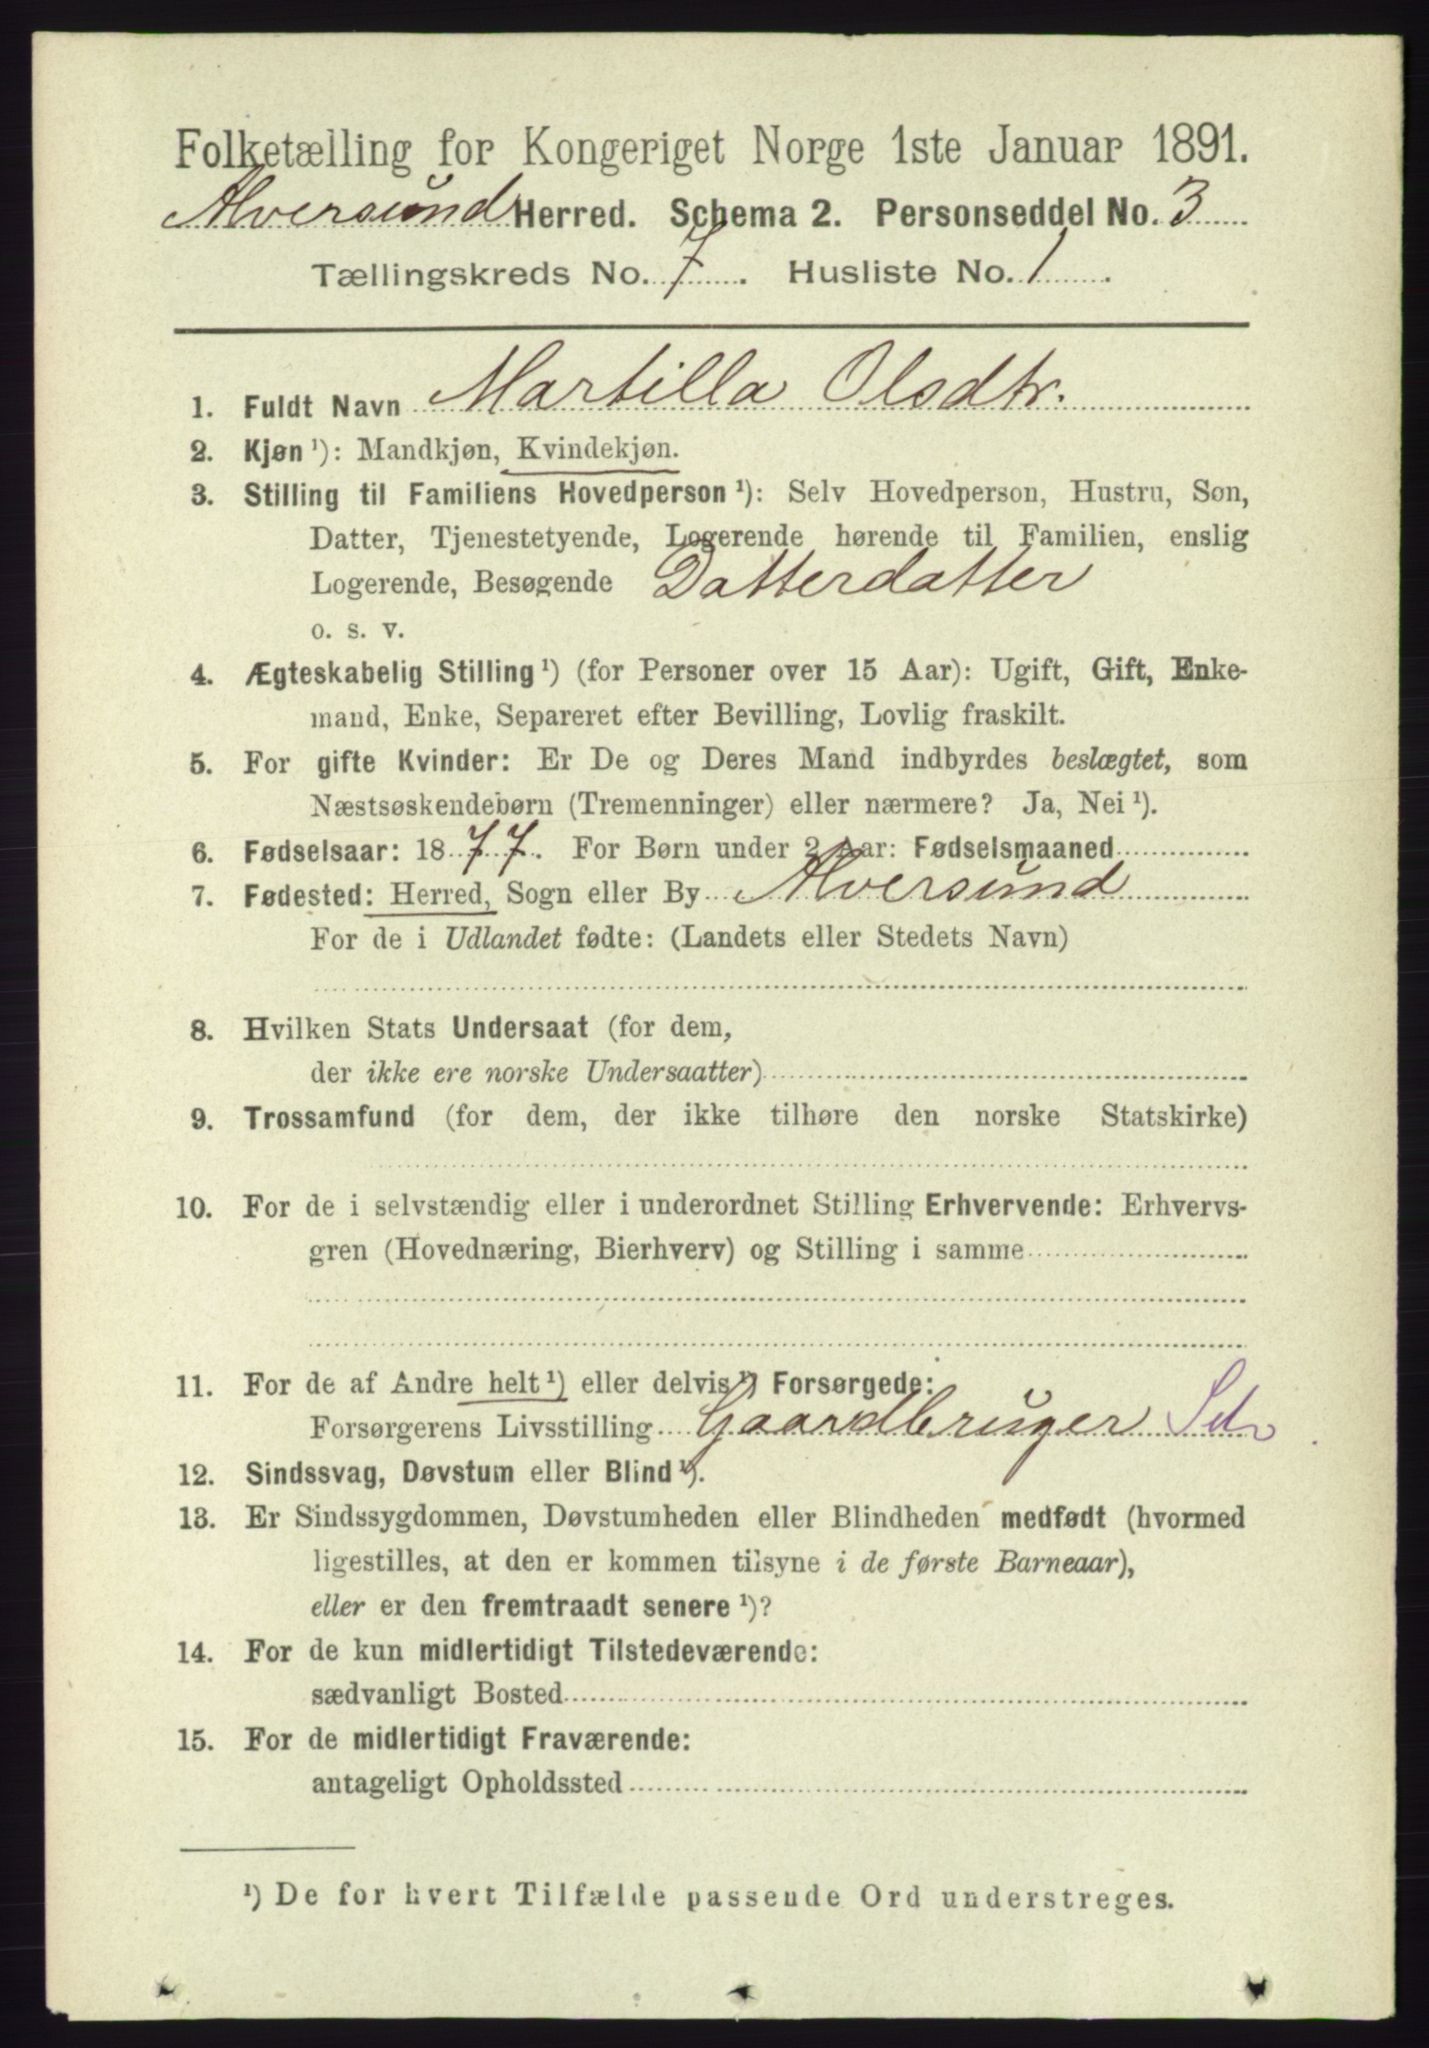 Folketælling for Kongeriget Norge 1ste Januar 1891.
Alversund Herred. Schema 2. Personseddel No. 3
Tællingskreds No. 7. Husliste No. 1.
1. Fuldt Navn Martilla Olsdtr.
2. Kjøn ¹): Mandkjøn, Kvindekjøn.
3. Stilling til Familiens Hovedperson ¹): Selv Hovedperson, Hustru, Søn,
Datter, Tjenestetyende, Logerende hørende til Familien, enslig
Logerende, Besøgende Datterdatter
o. s. v.
4. Ægteskabelig Stilling ¹) (for Personer over 15 Aar): Ugift, Gift, Enke-
mand, Enke, Separeret efter Bevilling, Lovlig fraskilt.
5. For gifte Kvinder: Er De og Deres Mand indbyrdes beslægtet, som
Næstsøskendebørn (Tremenninger) eller nærmere? Ja, Nei ¹).
6. Fødselsaar: 1877. For Børn under 2 Aar: Fødselsmaaned
7. Fødested: Herred, Sogn eller By Alversund
For de i Udlandet fødte: (Landets eller Stedets Navn)
8. Hvilken Stats Undersaat (for dem,
der ikke ere norske Undersaatter)
9. Trossamfund (for dem, der ikke tilhøre den norske Statskirke)
10. For de i selvstændig eller i underordnet Stilling Erhvervende: Erhvervs-
gren (Hovednæring, Bierhverv) og Stilling i samme
11. For de af Andre helt ¹) eller delvis ¹) Forsørgede:
Forsørgerens Livsstilling Gaardbruger
12. Sindssvag, Døvstum eller Blind ¹).
13. Er Sindssygdommen, Døvstumheden eller Blindheden medfødt (hvormed
ligestilles, at den er kommen tilsyne i de første Barneaar),
eller er den fremtraadt senere ¹)?
14. For de kun midlertidigt Tilstedeværende:
sædvanligt Bosted
15. For de midlertidigt Fraværende:
antageligt Opholdssted
¹) De for hvert Tilfælde passende Ord understreges.